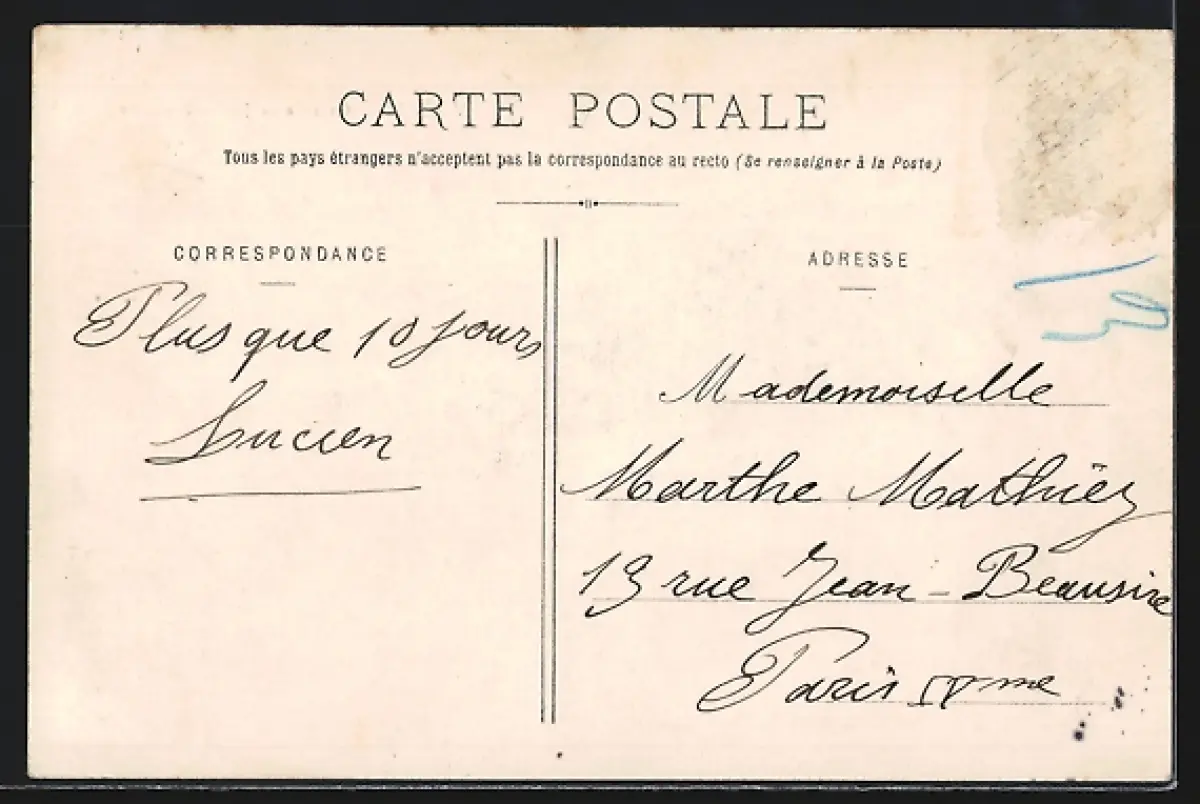 CARTE POSTALE
Tous les pays étrangers n'acceptent pas la correspondance au recto (Se renseigner à la Poste)
CORRESPONDANCE
Plus que 10 jours
Lucien
ADRESSE
Mademoiselle
Marthe Mathiez
13 rue Jean-Beausire
Paris